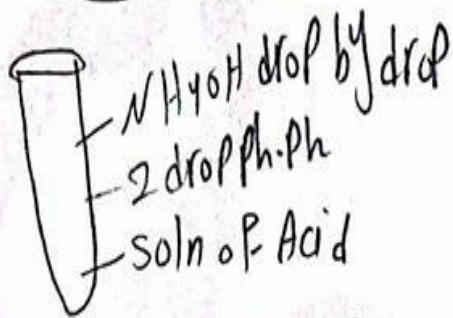 NH4OH drop by drop
2 drop ph.ph
soln of Acid